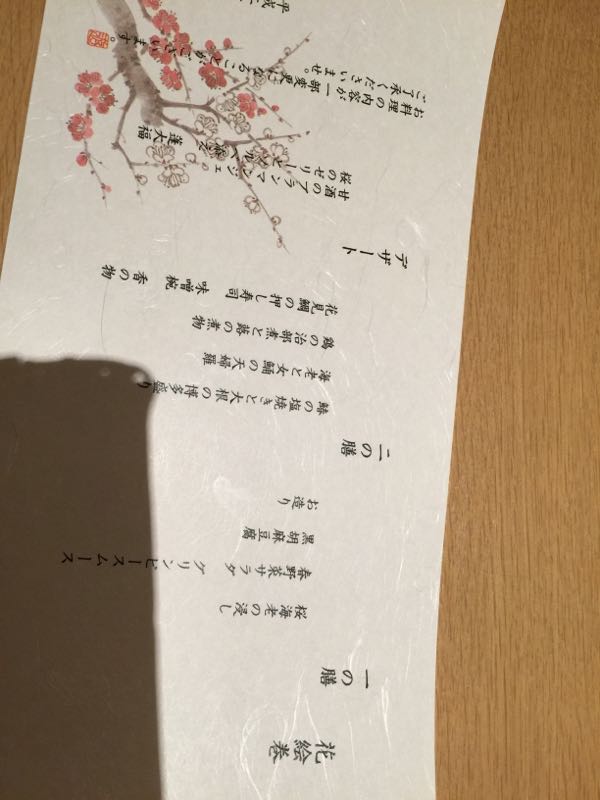 花絵巻
一の膳
桜海老の浸し
春野菜サラダ グリンピースムース
黒胡麻豆腐
お造り
二の膳
鰆の塩焼きと大根の博多盛り
海老と女鯒の天婦羅
鶏の治部煮と蕗の煮物
花見鯛の押し寿司 味噌椀 香の物
デザート
甘酒のブランマンジェ
桜のゼリー
蓮大福
お料理の内容が一部変更になることがございます。
ご了承くださいませ。
平成